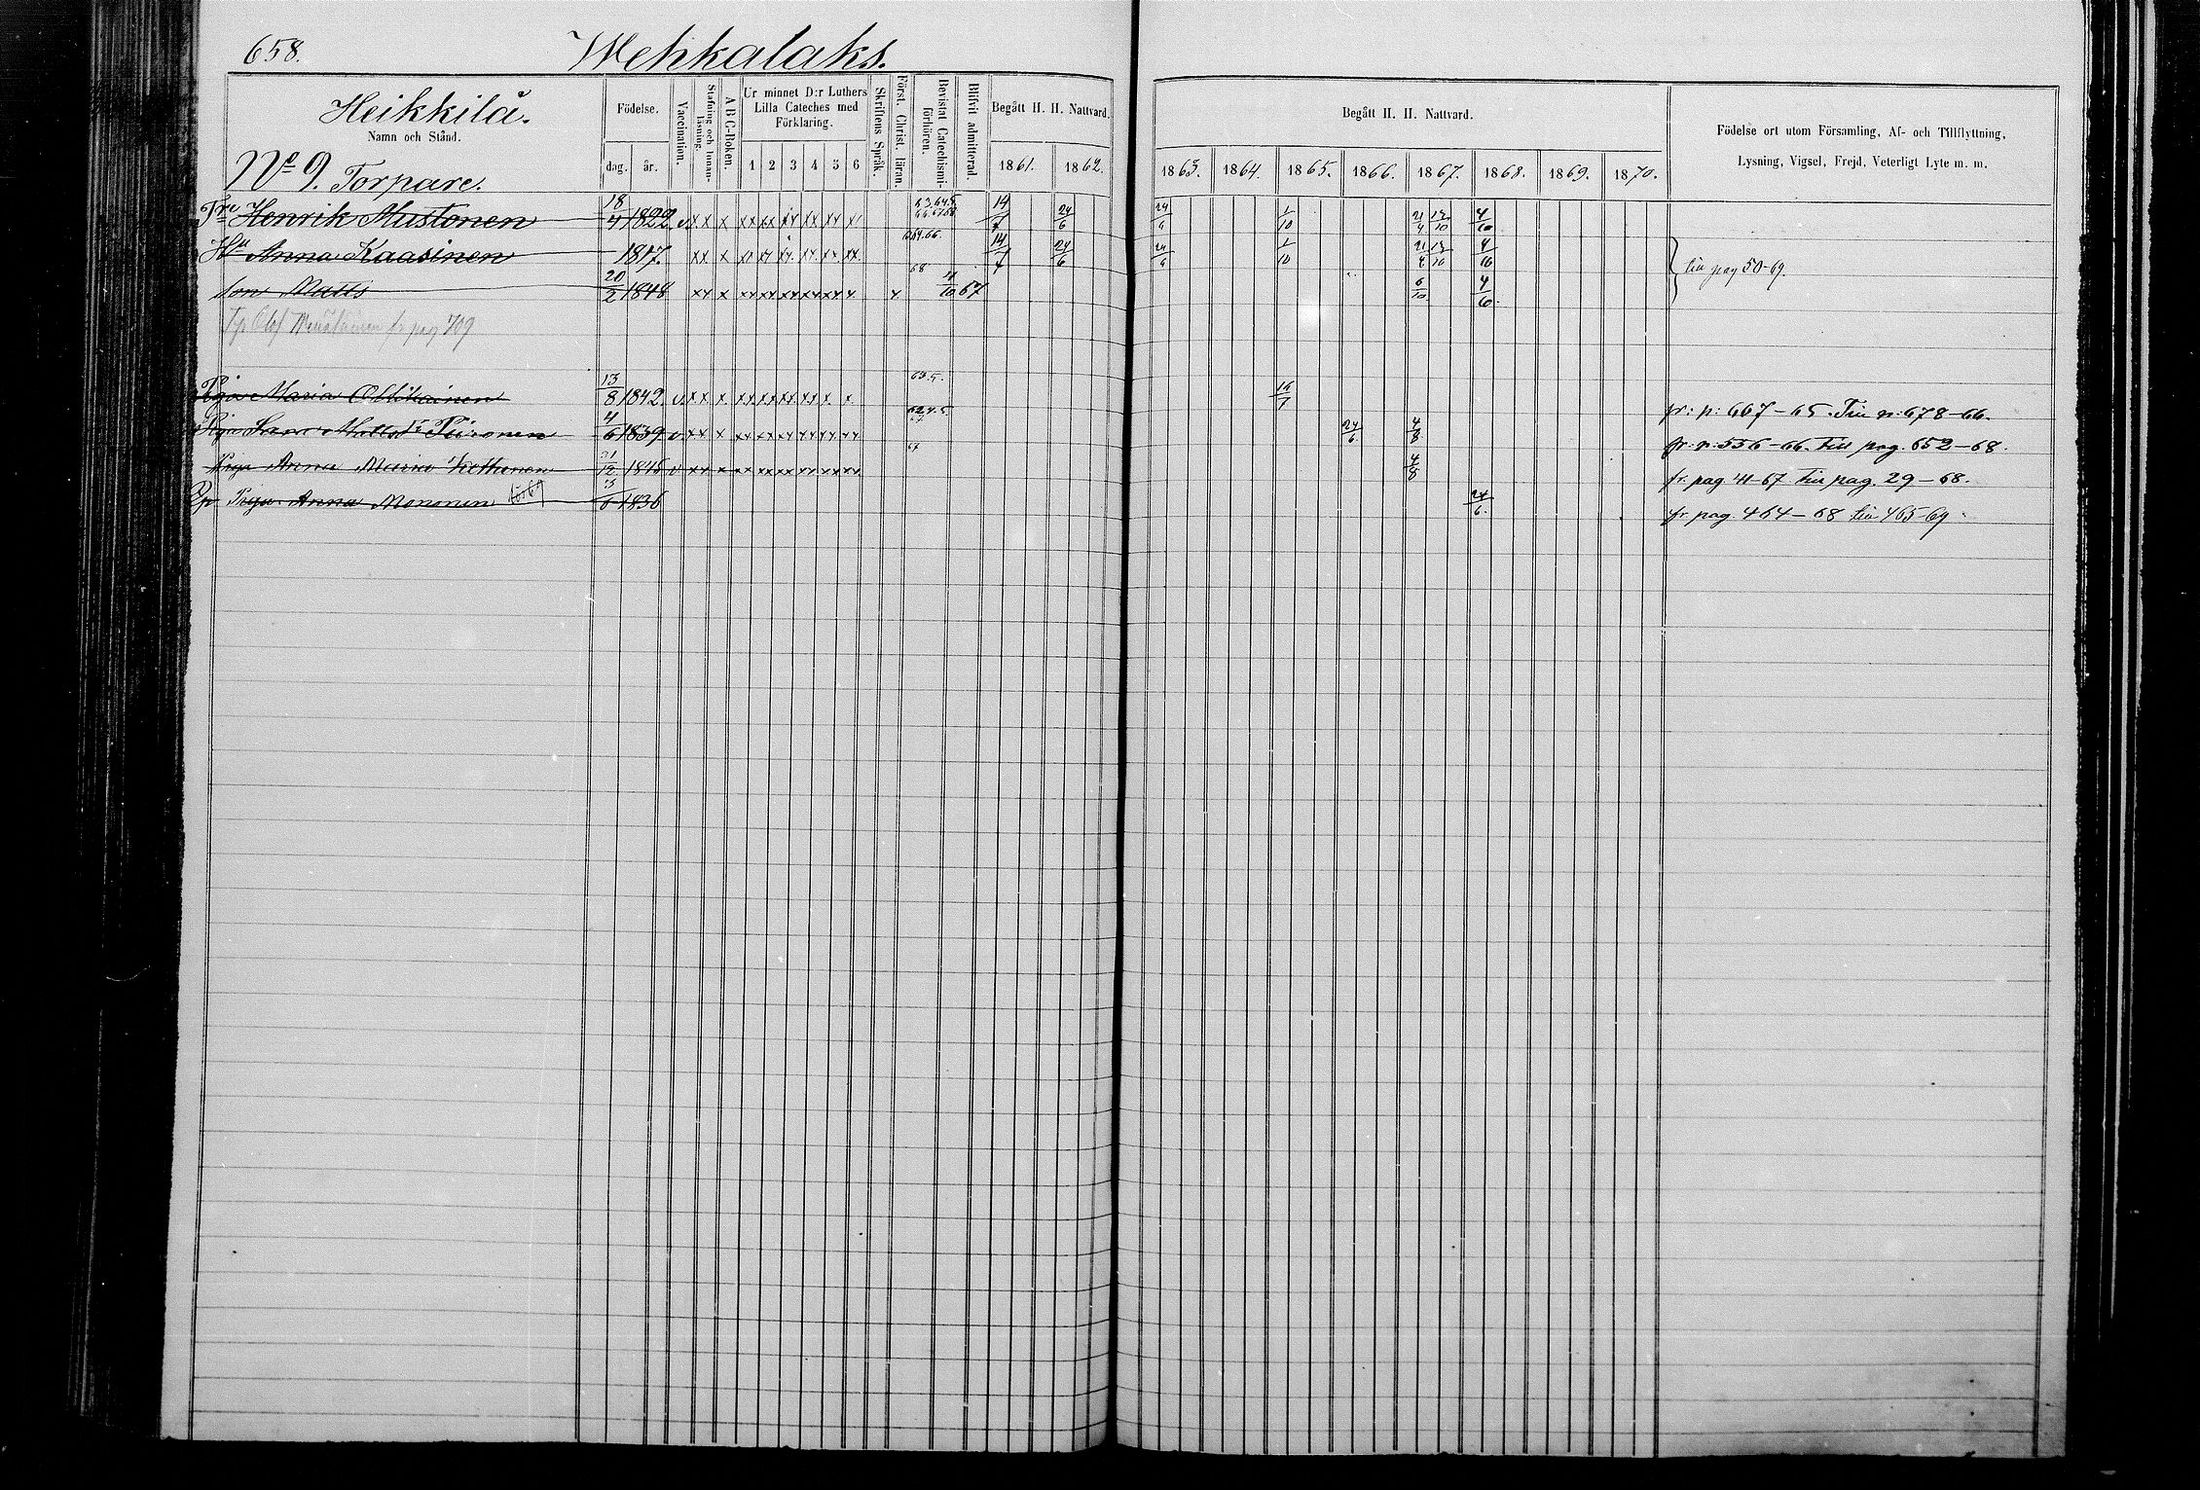 658.
Wehkalaks.
Heikkilä.
Namn och Stånd.
No 9. Torpare.
Födelse.
dag. år.
Vaccination.
Stafning och Innan-läsning.
A B C-Boken.
Ur minnet D:r Luthers
Lilla Cateches med
Förklaring.
1 2 3 4 5 6
Skriftens Språk.
Först. Christ. läran.
Bevistat Catechismi-förhören.
Blifvit admitterad.
Begått H. H. Nattvard.
1861. 1862.
Begått H. H. Nattvard.
1863. 1864. 1865. 1866. 1867. 1868. 1869. 1870.
Födelse ort utom Församling, Af- och Tillflyttning,
Lysning, Vigsel, Frejd, Veterligt Lyte m. m.
Tre Henrik Mustonen 18/4 1822 v xx x xx xx xx xx xx x 14/7 24/6 24/6 1/10 21/4 13/10 4/10
Hu Anna Kaasinen 1817. xx x 64.66. 14/7 24/6 24/6 1/10 21/4 13/10 4/10
till pag 50-69.
son Matts 20/2 1848 xx x xx xx xx xx xx x x 68 67 6/10 4/10.
Olof fr pag 709
Piga Maria Ollikainen 13/8 1842. v xx x xx xx xx xx x x 63.5. 16/7 fr: p: 667-65. Till p: 678-66.
Piga Matts dr Piironen 4/6 1839 v xx x xx xx xx xx xx xx 24/6. 4/8 fr. p: 536-66. till pag. 652-68.
Piga Anna Maria Kettunen 1845 v xx x xx xx xx xx xx xx 67 4/8 fr. pag 41-67 till pag. 29-68.
Piga Anna Mononen 1836 24/6. fr. pag. 464-68 till 465-69